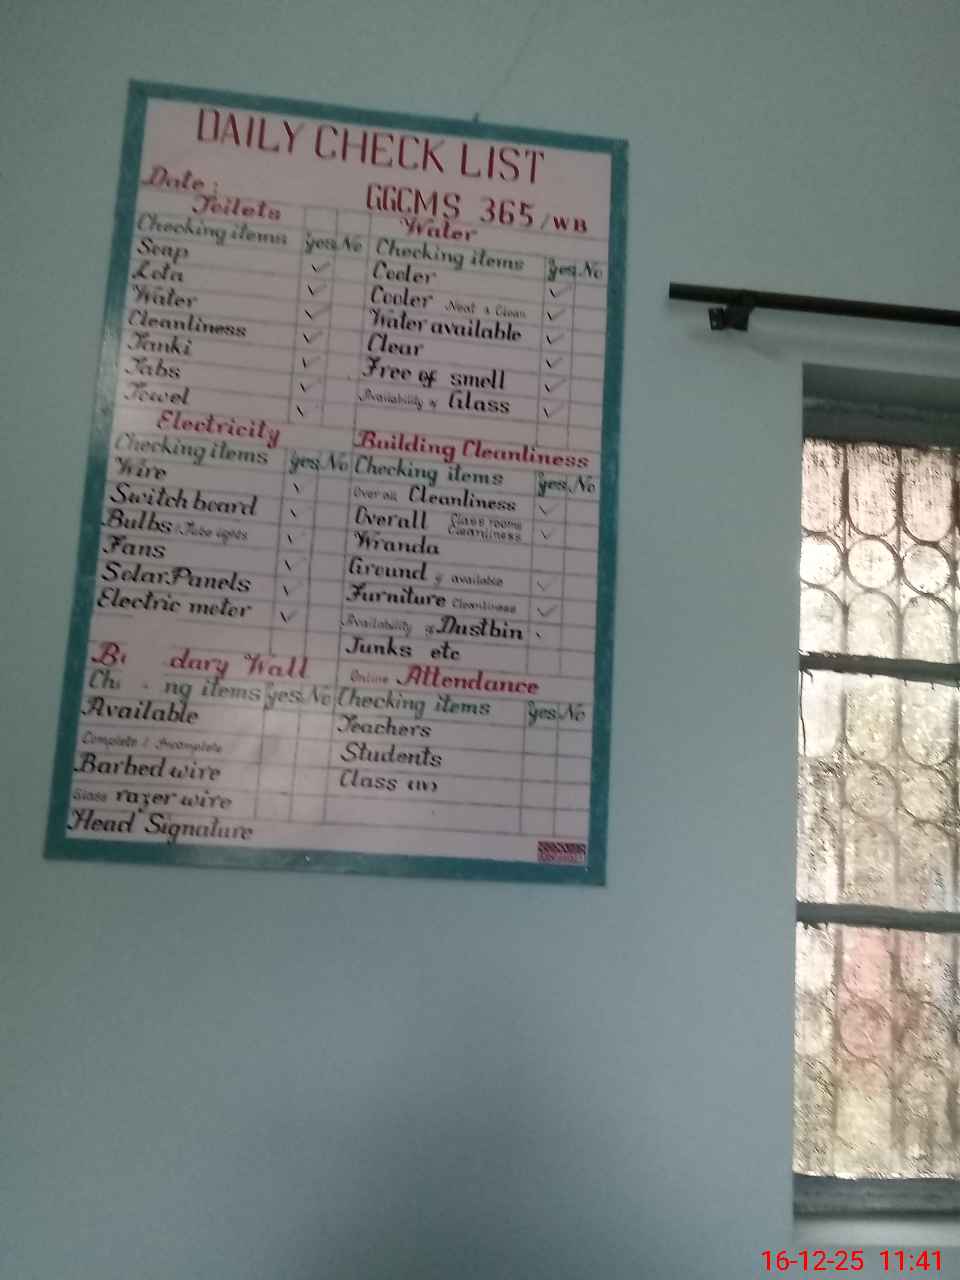 DAILY CHECK LIST
Date: GGCMS 365/WB
Toilets
Checking items yes No
Soap ✓
Lota ✓
Water ✓
Cleanliness ✓
Tanki ✓
Tabs ✓
Towel ✓
Water
Checking items yes No
Cooler ✓
Cooler Neat & Clean ✓
Water available ✓
Clear ✓
Free of smell ✓
Availability of Glass ✓
Electricity
Checking items yes No
Wire ✓
Switch board ✓
Bulbs /Tube lights ✓
Fans ✓
Solar Panels ✓
Electric meter ✓
Building Cleanliness
Checking items yes No
Over all Cleanliness ✓
Overall Class rooms Cleanliness ✓
Wranda
Ground if available ✓
Furniture Cleanliness ✓
Availability of Dustbin
Junks etc
dary Wall
Ch ng items yes No
Available
Complete / Incomplete
Barbed wire
Glass razer wire
Head Signature
Online Attendance
Checking items yes No
Teachers
Students
Class
16-12-25 11:41